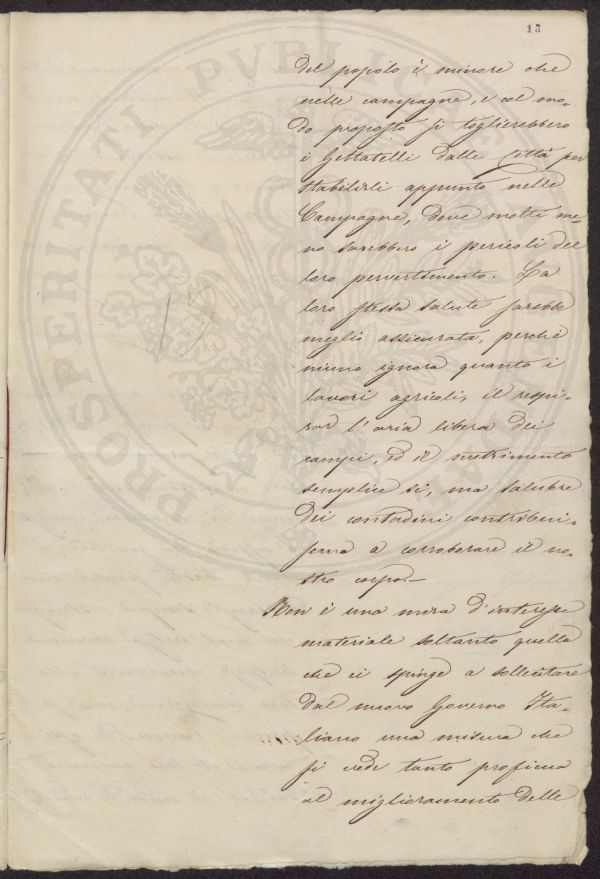 13
del popolo è minore che
nelle campagne, e col mo-
do proposto si toglierebbero
i Gettatelli dalle Città per
stabilirli appunto nelle
Campagne, dove molti me-
no sarebbero i pericoli del
loro pervertimento. La
loro stessa salute sarebbe
meglio assicurata, perchè
niuno ignora quanto i
lavori agricoli, il respi-
rar l'aria libera dei
campi, ed il nutrimento
semplice sì, ma salubre
dei contadini contribui-
scano a corroborare il no-
stro corpo.—
Non è una mira d'interesse
materiale soltanto quella
che ci spinge a sollecitare
dal nuovo Governo Ita-
liano una misura che
si crede tanto proficua
al miglioramento delle
15
PROSPERITATI PVBLICAE